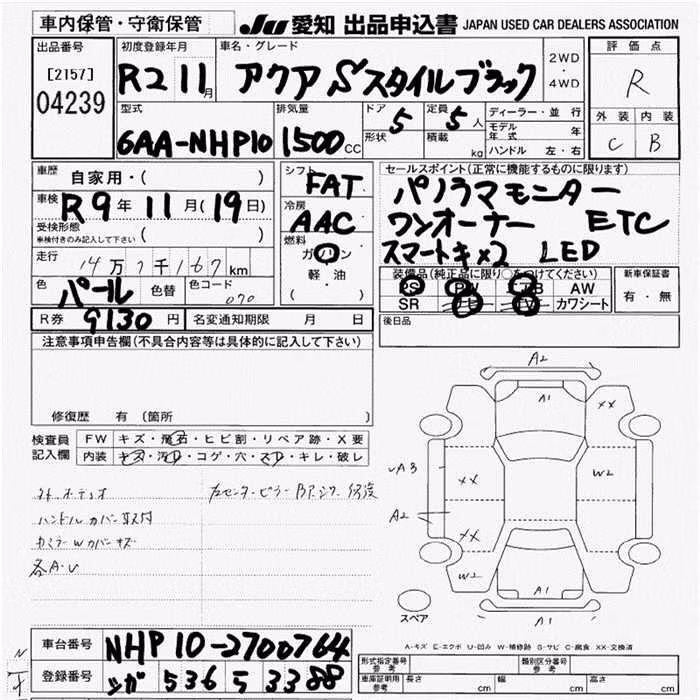 車内保管・守衛保管
JU 愛知 出品申込書 JAPAN USED CAR DEALERS ASSOCIATION
出品番号
[2157]
04239
初度登録年月
R2 11月
車名・グレード
アクア Sスタイルブラック
2WD
・
4WD
評価点
R
外装 内装
C B
型式
6AA-NHP10
排気量
1500CC
ドア 5
形状
定員 5人
積載 kg
ディーラー・並行
モデル年式 年
ハンドル 左・右
車歴 自家用・( )
車検 R9年11月(19日)
受検形態
※検付きのみ記入して下さい ( )
走行 14万7千167km
色 パール 色替 色コード 070
R券 9130円 名変通知期限 月 日
シフト FAT
冷房 AAC
燃料
ガソリン
軽・油
( )
セールスポイント(正常に機能するものに限ります)
パノラマモニター
ワンオーナー ETC
スマートキ×2 LED
装備品(純正品に限り○をつけてください)
PS PW AB AW
SR ナビ TV カワシート
新車保証書
有・無
後日品
注意事項申告欄(不具合内容等は具体的に記入して下さい)
修復歴 有(箇所
検査員記入欄
FW キズ・飛石・ヒビ割・リペア跡・X要
内装 キズ・汚れ・コゲ・穴・スレ・キレ・破レ
ハンドルカバー取付
各A・U
A2
A1
XX
A3
XX
W2
A2
XX
W2
A1
A1
スペア
A-キズ E-エクボ U-凹み W-補修跡 S-サビ C-腐食 XX-交換済
車台番号 NHP10-2700764
登録番号 536 5 3388
形式指定番号
参考
類別区分番号
参考
車庫証明用
参考
長さ cm 幅 cm 高さ cm